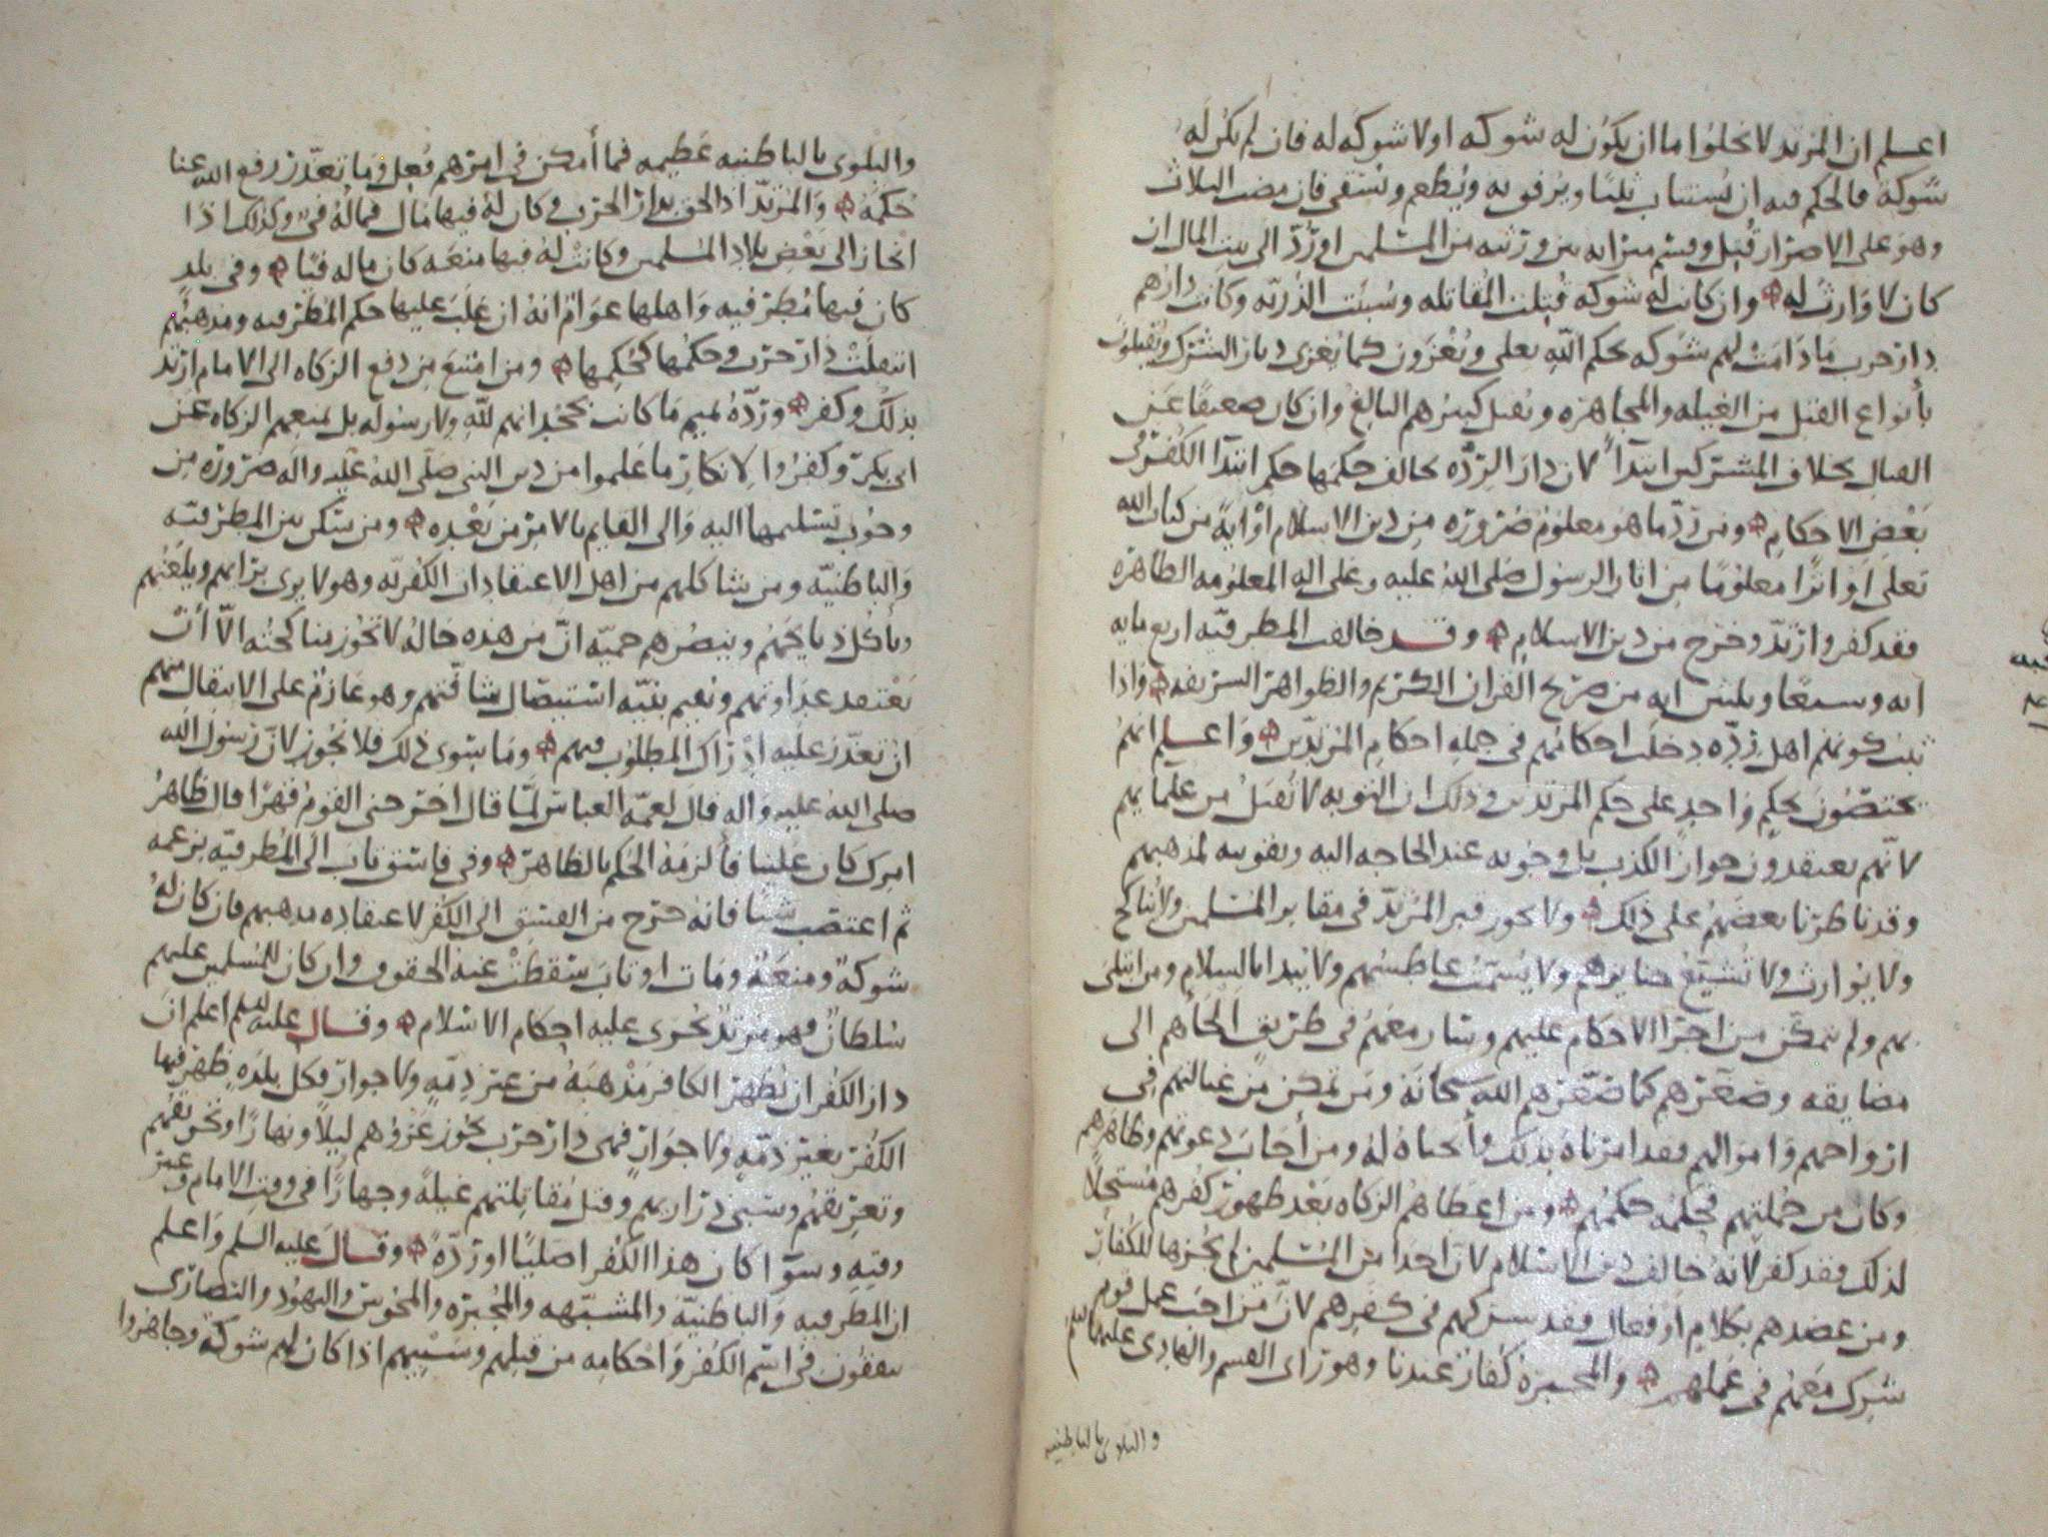 اعلم ان المرتد لا يخلوا اما ان يكون له شوكه او لا شوكه له فان لم يكن له
شوكة فالحكم فيه ان يستتاب ثلثًا ويرفق به ويُطعم ويُسقى فان مضت الثلاث
وهو على الاصرار قُتِل وقسم ميراثه بين ورثته من المسلمين او رُدّ الى بيت المال ان
كان لا وَارث له وان كانت له شوكه قُتِلت المقاتله وسُبيَت الذُّريّه وكانت دارهم
دار حرب مَا دَامَتْ لهم شوكه بحكم الله تعلى ويُغْزَون كما يُغزى ديار الشرك ويُقتلون
بأنواع القتل من الغيله والمجاهره ويقتل كبيرهم البالغ وان كان ضعيفًا عن
القتال بخلاف المشركين ابتدآءً لان دارَ الرِّدّه يخالف حكمها حكم ابتدا الكُفر في
بَعْضِ الاحكام ومن رَدّ ما هو معلوم ضَرُورَه مِن دين الاسلام او ايةً من كتاب الله
تعلى او اثرًا معلومًا مِن اثار الرسول صلى الله عليه وعلى اله المعلومه الظاهره
فقد كفر وارتدّ وخرج من دين الاسلام وقد خالفت المطرفيّه اربع مايه
ايه وسبعًا وثلثين ايه من صريح القران الكريم والظواهر الشريفه واذا
ثبت كونهم اهل رِدّه دخلت احكامهم في جمله احكام المرتدّين وَاعلم انهم
يختصّون بحكمٍ وَاحدٍ على حكم المرتدين وذلك ان التوبه لا تُقبَلُ من علمايهم
لانّهم يعتقدون جواز الكذب بل وجوبه عند الحاجه اليه وتقويه لمذهبهم
وقد ناظرنا بعضهم على ذلك ولا يجوز قبر المُرتدّ في مقابر المسلمين ولا يُناكح
ولا يُوارث ولا تُشيّعُ جنايزهم ولا يُسمّتُ عاطسهم ولا يُبدا بالسلام ومن ابتلى
بهم ولم يتمكّن من اجرا الاحكام عليهم وسَار معهم في طريق الجأهم الى
مضايقه وصَغّرهم كما صَغّرهم الله سبحانه ومن تمكن من غيالتهم في
ازواجهم وَاموَالهم فقد امرناه بذلك وأبحناه له ومن أجَابَ دعوتهم وظاهرهم
وكان من جُملتهم فحكمُه حكمُهم ومن اعطَاهُم الزكاه بَعْد ظهور كُفرهم مُستحلًا
لذلك فقد كفر لانهُ خالف دين الاسلام لان احدًا من المسلمين لم يُجزها للكُفارِ
ومن عضدهم بكلامٍ او فعالٍ فقد شركهم في كفرهم لانّ مَن احبّ عمل قومٍ
شرِك مَعَهم في عَملهم والمجبرة كُفّارٌ عندنا وهو رَاى القسم والهَادى عليهما السلم
والبلوى بالباطنيه
والبلوى بالباطنيه عَظيمه فما أمكن في امرهم فُعِل وَما تعَذّر رفع الله عنا
حُكمَهُ وَالمُرتدّ اذا لحق بدار الحرب وكان لهُ فيها مَال فمالُهُ فَيء وكذلك اذا
انحاز الى بَعْضِ بلاد المسلمين وكانت لهُ فيها منعَه كان ماله فَيًا وفي بلدٍ
كان فيها مُطرّفيه وَاهلها عوَامّ انهُ ان غلَبَ عليها حكم المُطرفيه ومذهبُهم
انتقلَتْ دَارَ حرب وحكمُها كحُكمِها ومن امتنعَ مِن دفع الزكاه الى الامام ارتدّ
بذلك وكفر وردّهُ تميم مَا كانت بجحدانهم للّهِ ولا رسُوله بل بمنعهم الزكاه عن
ابى بكر وكفرُوا لإنكارِ ما عَلموا من دين النبى صلى اللهُ عَليه واله ضَرُورَه مِن
وجُوب تسليمها اليه وَالى القايم بالامرِ من بَعْدِه ومن يسكن بين المطرفيّه
وَالباطنيّه ومن يشاكلهم من اهل الاعتقادات الكُفريّه وهو لا يرى برَايهم ويلعنهم
ويأكُل ذبايحَهُم وينصُرهم حميّه انّ من هَذه حَالهُ لا تجُوز مناكحتُه الاّ أنْ
يَعْتقد عدَاوتهم ونُصِب بنيّه استيصَال شافَتهم وهو عَازمٌ على الانتقال منهم
ان تعذّر عليه اِدْرَاكُ المطلُوب فيهم ومَا سوى ذلك فلا يَجُوز لانّ رَسُول الله
صلى اللهُ عليه واله قال لعمّه العبّاس لمّا قال اخرجنى القومُ قهرًا قال ظاهرُ
امرك كان علينا فألزمَهُ الحكم بالظاهر وفي فاسق تابَ الَى المُطرفيّه بزعمه
ثم اغتصَب شيئا فانهُ خرج من الفسق الى الكُفر لاعتقادِه مذهبهم فان كان لهُ
شوكةٌ ومنعَةٌ ومَات او تابَ سَقطتْ عنهُ الحقوق وان كان للمُسلمين عليهم
سُلطانٌ فهو مرتدّ تجْرى عليه احكام الاسْلام وقال عليه السلم اعلم انّ
دارَ الكُفر ان يُظهرَ الكافر مَذْهبَهُ من غير ذِمّهٍ ولا جوارٍ فكل بلدَهٍ ظهرَ فيها
الكُفرُ بغير ذمّهٍ ولا جوارٍ فهى دار حَرْبٍ يجُوز غزوُهم ليلاً ونهارًا وتحريقُهم
وتغريقهُم وسَبى ذرَاريهم وقتلُ مُقاتلتهم غيلةً وجهارًا فى وقتِ الامام وغير
وقتِه وسوَآ كان هذا الكُفر اصليًا او رِدّةً وقال عليه السلم وَاعلم
ان المطرفيه وَالباطنيّه والمشبّهه والمُجبره والمجُوس واليهُود والنصارَى
يتفقُون فى اسْم الكُفر وَاحْكامِه من قتلِهم وسَبْيهم اذا كان لهم شوكة وجاهَرُوا